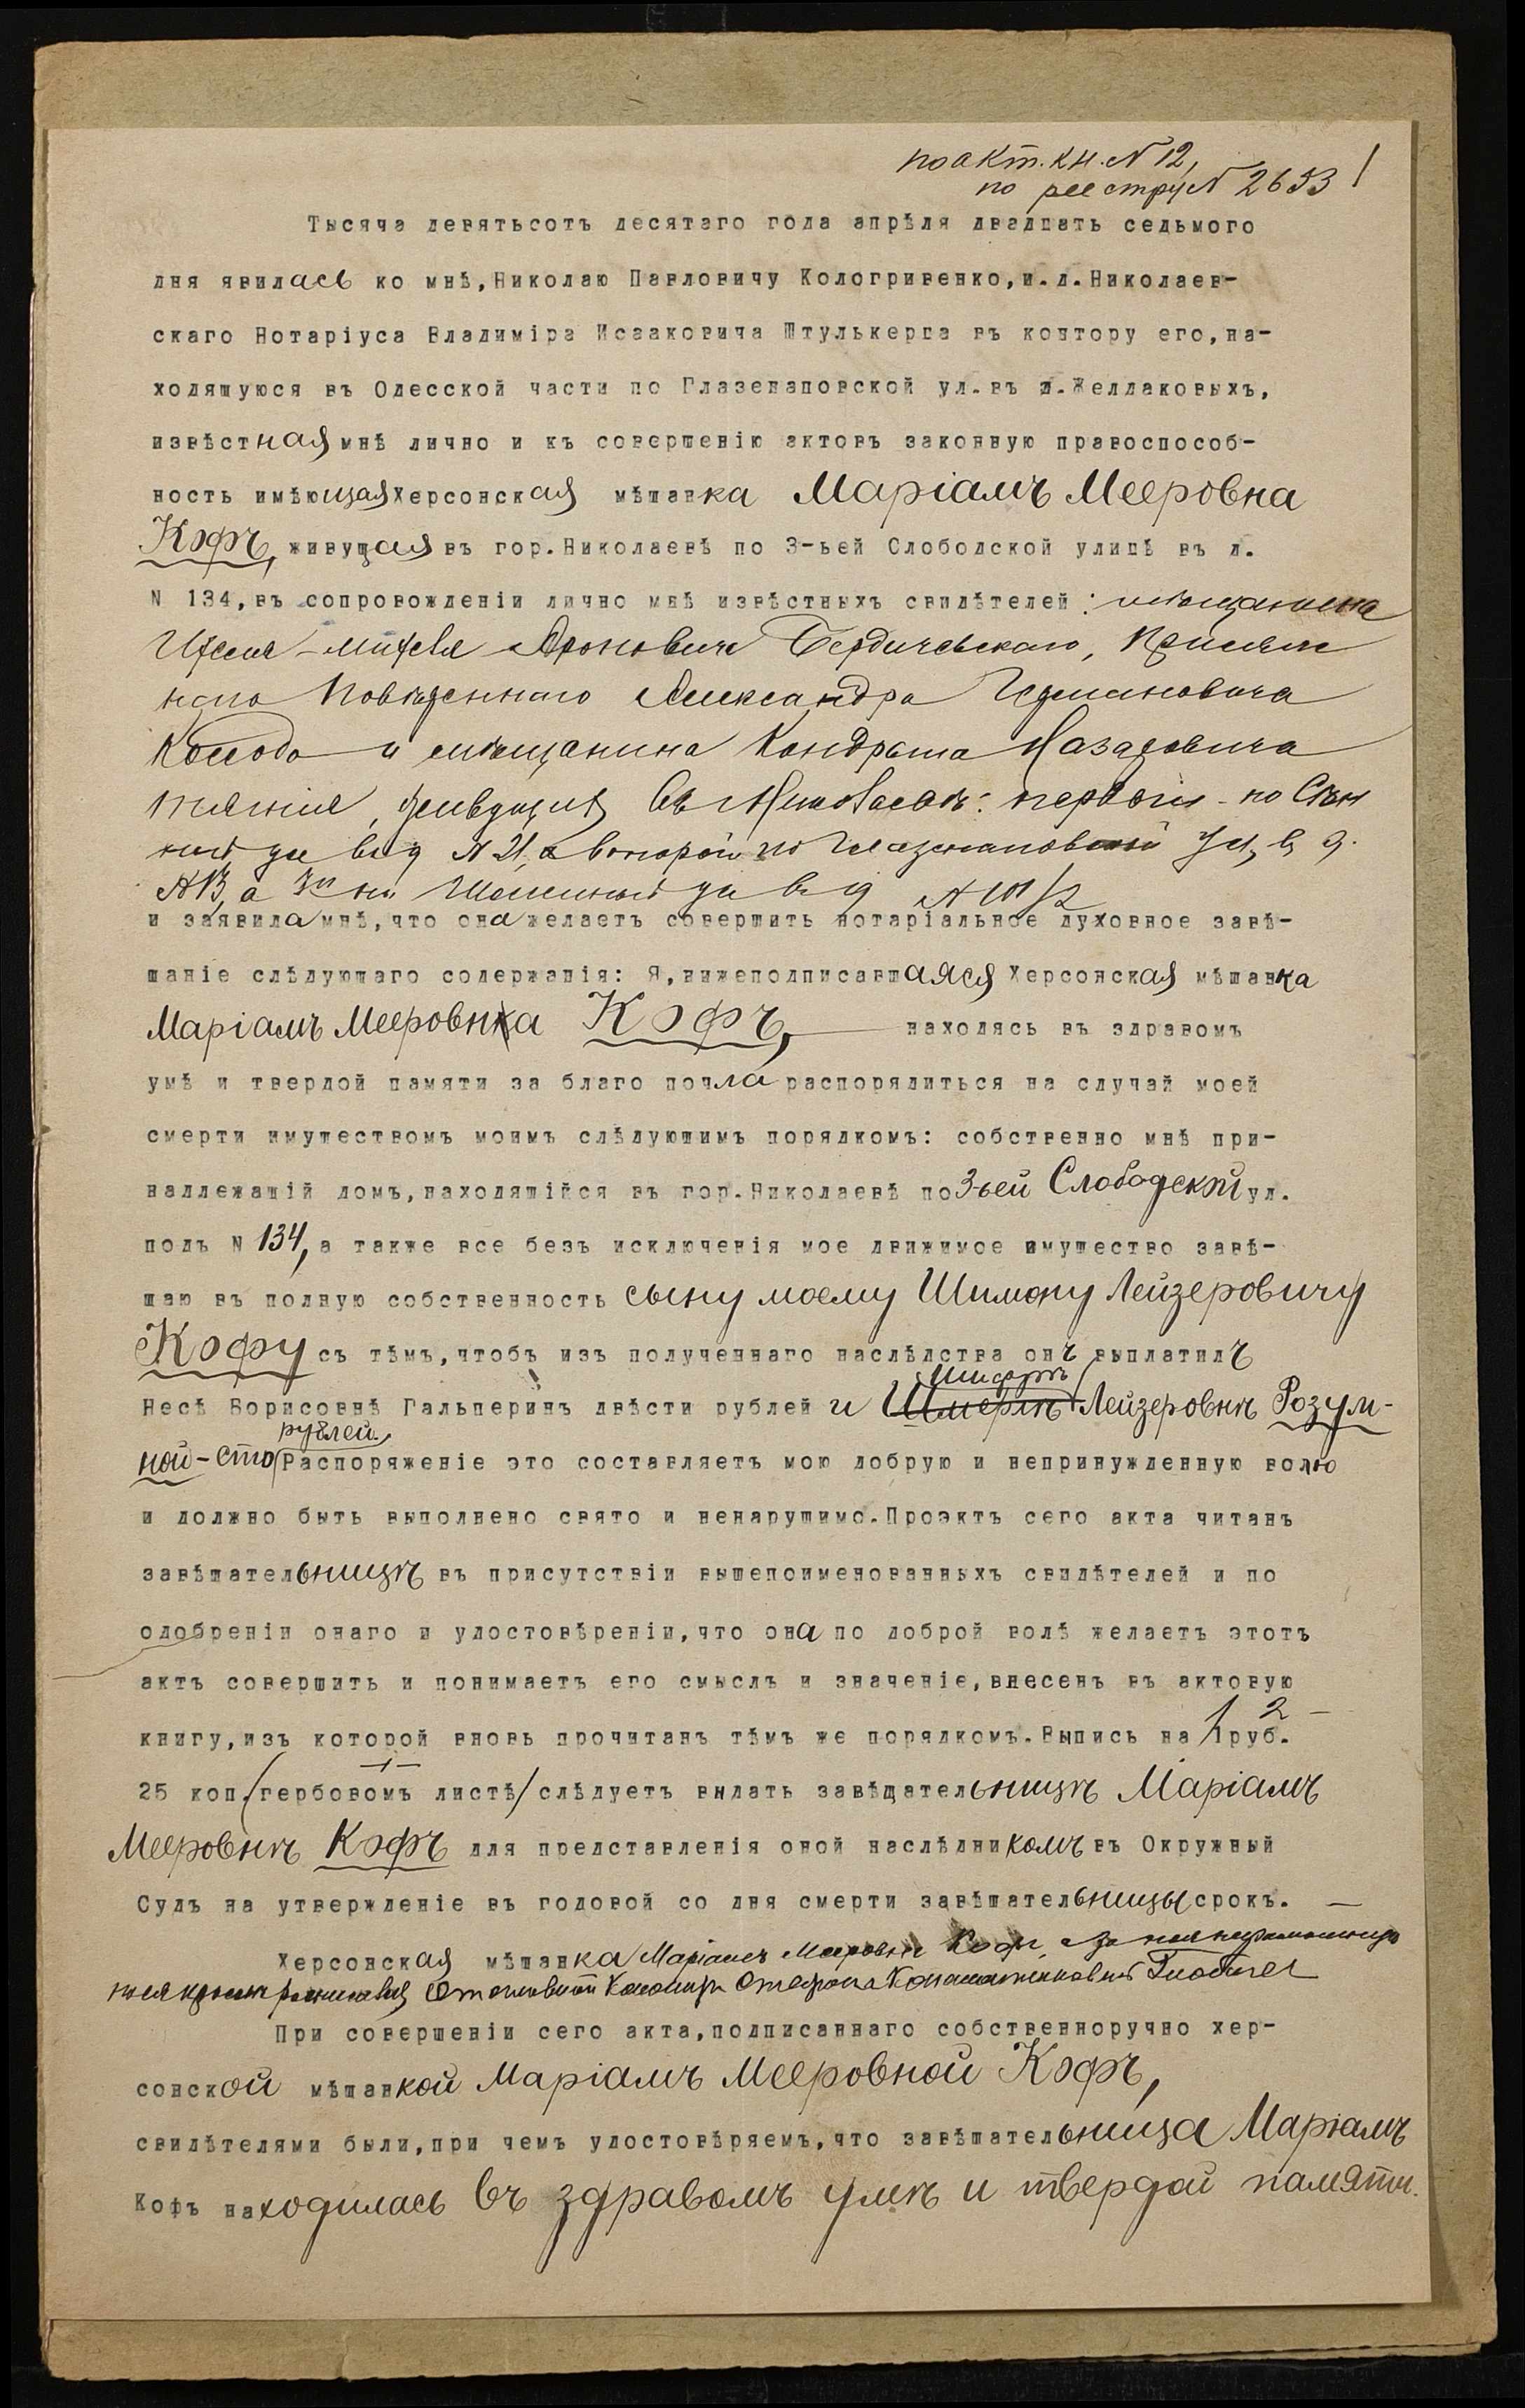 по акт. кн. N 12,
по реестру N 2653
Тысяча девятьсотъ десятаго года апрѣля двадцать седьмого
дня явилась ко мнѣ, Николаю Павловичу Кологривенко, и.д. Николаев-
скаго Нотаріуса Владиміра Исааковича Штулькерца въ контору его, на-
ходящуюся въ Одесской части по Глазенаповской ул. въ д. Желлаковыхъ,
извѣстная мнѣ лично и къ совершенію актовъ законную правоспособ-
ность имѣющая Херсонская мѣщанка Маріамъ Мееровна
Кофъ, живущая въ гор. Николаевѣ по 3-ьей Слободской улицѣ въ д.
N 134, въ сопровожденіи лично мнѣ извѣстныхъ свидѣтелей: мѣщанина
Ароновича Бердичевскаго, Присяж
наго Повѣреннаго Александра Германовича
и мѣщанина Кондрата Назаровича
въ Николаевѣ: первый - по Сѣн
ной ул въ д N 21, а второй по Глазенаповской ул, в д.
N 13, а 3й ул в д N 101/2
и заявила мнѣ, что она желаетъ совершить нотаріальное духовное завѣ-
щаніе слѣдующаго содержанія: Я, нижеподписавшаяся Херсонская мѣщанка
Маріамъ Мееровна Кофъ, находясь въ здравомъ
умѣ и твердой памяти за благо почла распорядиться на случай моей
смерти имуществомъ моимъ слѣдующимъ порядкомъ: собственно мнѣ при-
надлежащій домъ, находящійся въ гор. Николаевѣ по 3-ьей Слободской ул.
подъ N 134, а также все безъ исключенія мое движимое имущество завѣ-
щаю въ полную собственность сыну моему Шимону Лейзеровичу
Кофу съ тѣмъ, чтобъ изъ полученнаго наслѣдства онъ выплатилъ
Несѣ Борисовнѣ Гальперинъ двѣсти рублей и Лейзеровнѣ Розум-
ной - сто рублей. Распоряженіе это составляетъ мою добрую и непринужденную волю
и должно быть выполнено свято и ненарушимо. Проэктъ сего акта читанъ
завѣщательницѣ въ присутствіи вышепоименованныхъ свидѣтелей и по
одобреніи онаго и удостовѣреніи, что она по доброй волѣ желаетъ этотъ
актъ совершить и понимаетъ его смыслъ и значеніе, внесенъ въ актовую
книгу, изъ которой вновь прочитанъ тѣмъ же порядкомъ. Выпись на 1 руб.
25 коп. /гербовомъ листѣ/ слѣдуетъ выдать завѣщательницѣ Маріамъ
Мееровнѣ Кофъ для представленія оной наслѣдникомъ въ Окружный
Судъ на утвержденіе въ годовой со дня смерти завѣщательницы срокъ. —
Херсонская мѣщанка Маріамъ Мееровна Кофъ, а за нея неграмотную
При совершеніи сего акта, подписаннаго собственноручно хер-
сонской мѣщанкой Маріамъ Мееровной Кофъ,
свидѣтелями были, при чемъ удостовѣряемъ, что завѣщательница Маріамъ
Кофъ находилась въ здравомъ умѣ и твердой памяти.